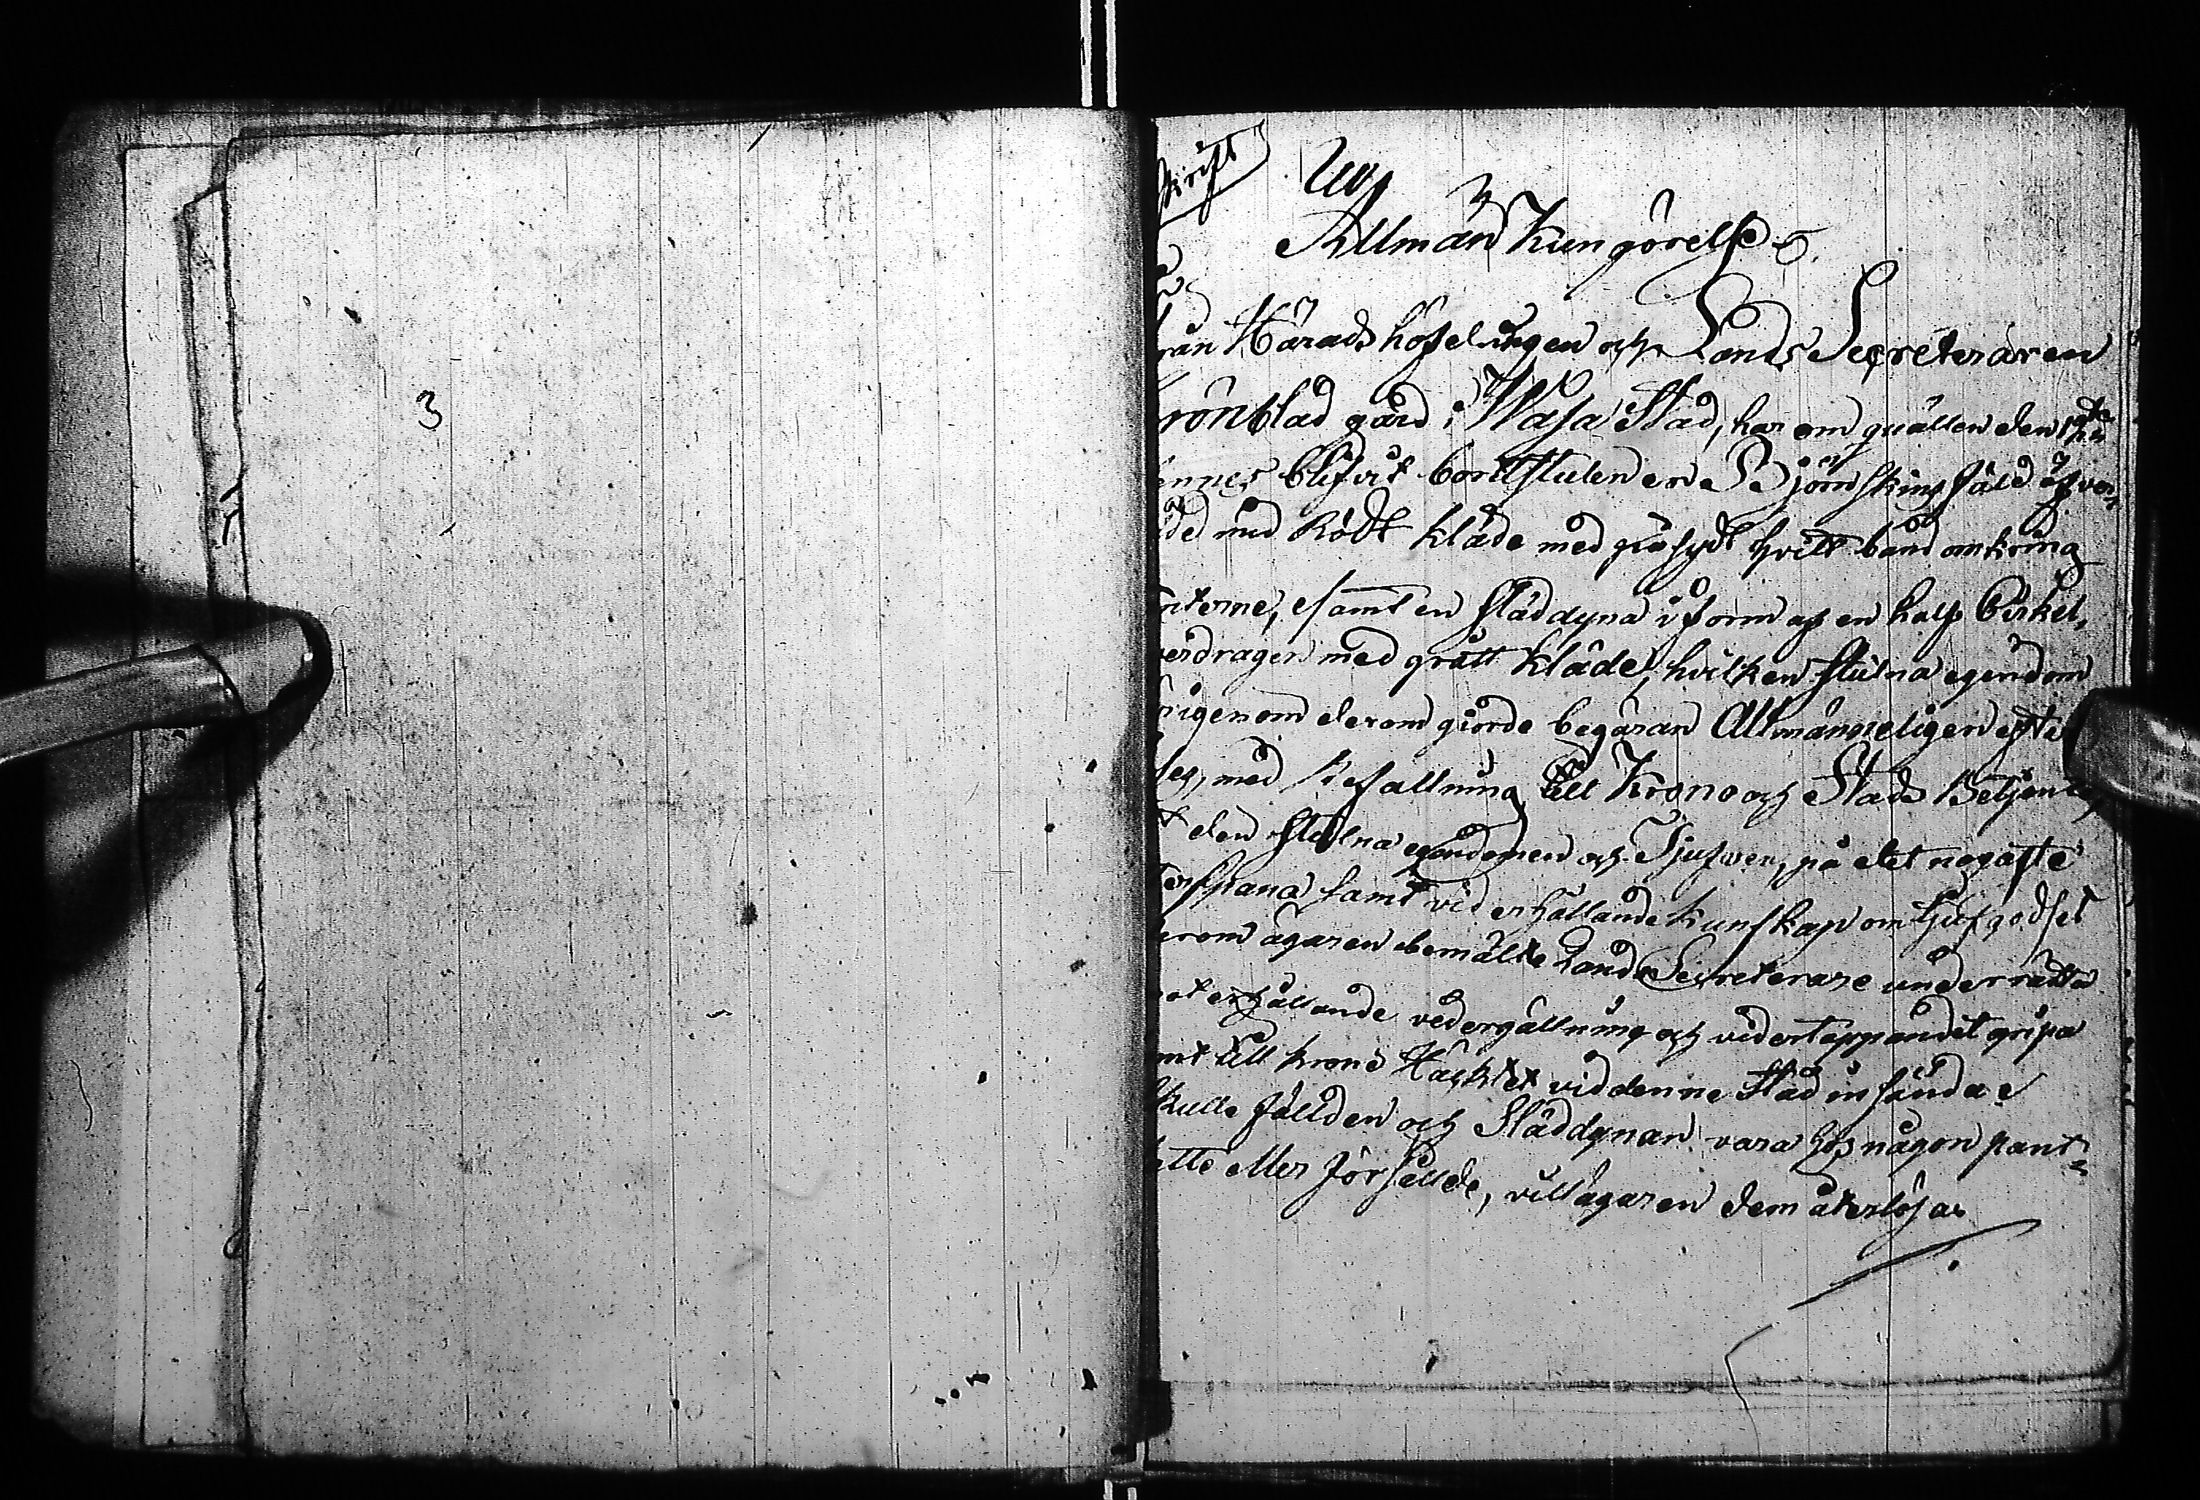 3
skrift
Allmän Kungörelse
rån Häradshöfdingen och Lands Secreteraren
rönblad gård i Wasa Stad, har om quällen den
innes blifvit bortstulen en Björnskins fäld öfver-
dd med Rödt kläde med påsydt hvitt band omkring
nterne, samt en släddyna i form af en half Cirkel,
verdragen med grått kläde, hvilken stulna egendom
rigenom derom giorde begäran Allmänneligen efte
ses, med Befallning till Krono och Stads Betjening
t den stulna egendomen och Tjufwen, på det nogaste
terspana samt vid erhållande kunskap om tjufgodset
erom ägaren bemälte Lands Secreterare underrätta
ot erhållande vedergällning och vid ertappandet gripa
mt till krono Häcktet vid denne Stad insända
kulle fällden och Släddynan vara hos någon pant-
atte eller försellde, vill ägaren dem återlösa